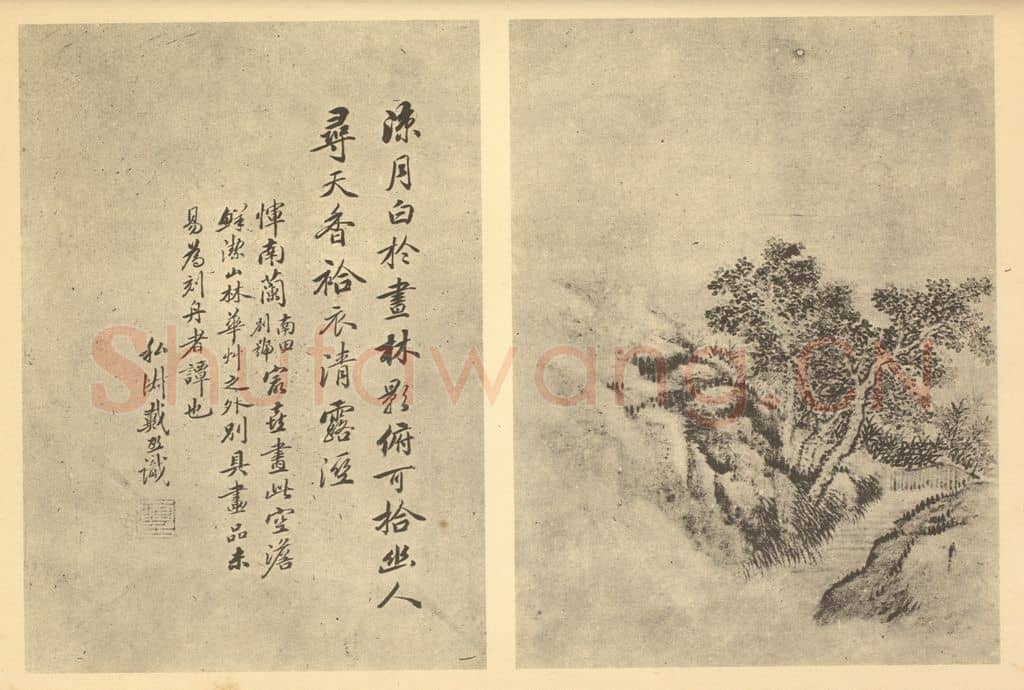 涼月白於晝林影俯可拾幽人
尋天香袷衣清露溼
惲南蘭南田別號最喜畫此空澹
鮮潔山林華艸之外別具畫品未
易為刻舟者譚也
私淑戴熙識
Shufawang.CN